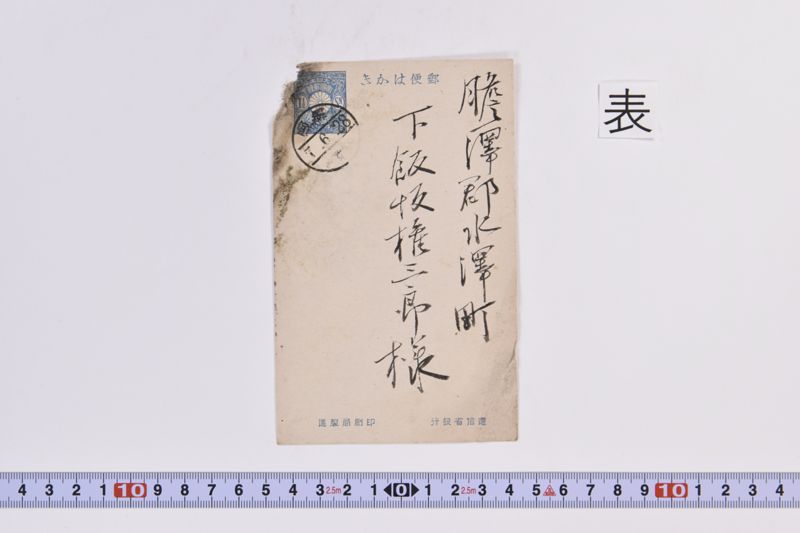 郵便はかき
膽澤郡水澤町
下飯坂権三郎様
遞信省發行
印刷局製造
表
4 3 2 1 10 9 8 7 6 5 4 3 2.5m 2 1 0 1 2 2.5m 3 4 5 6 7 8 9 10 1 2 3 4